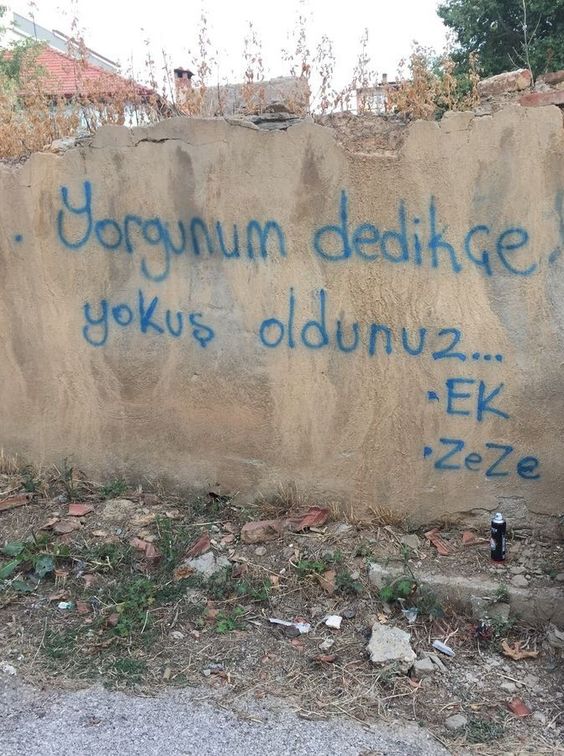 Yorgunum dedikçe
yokuş oldunuz...
•EK
•ZeZe